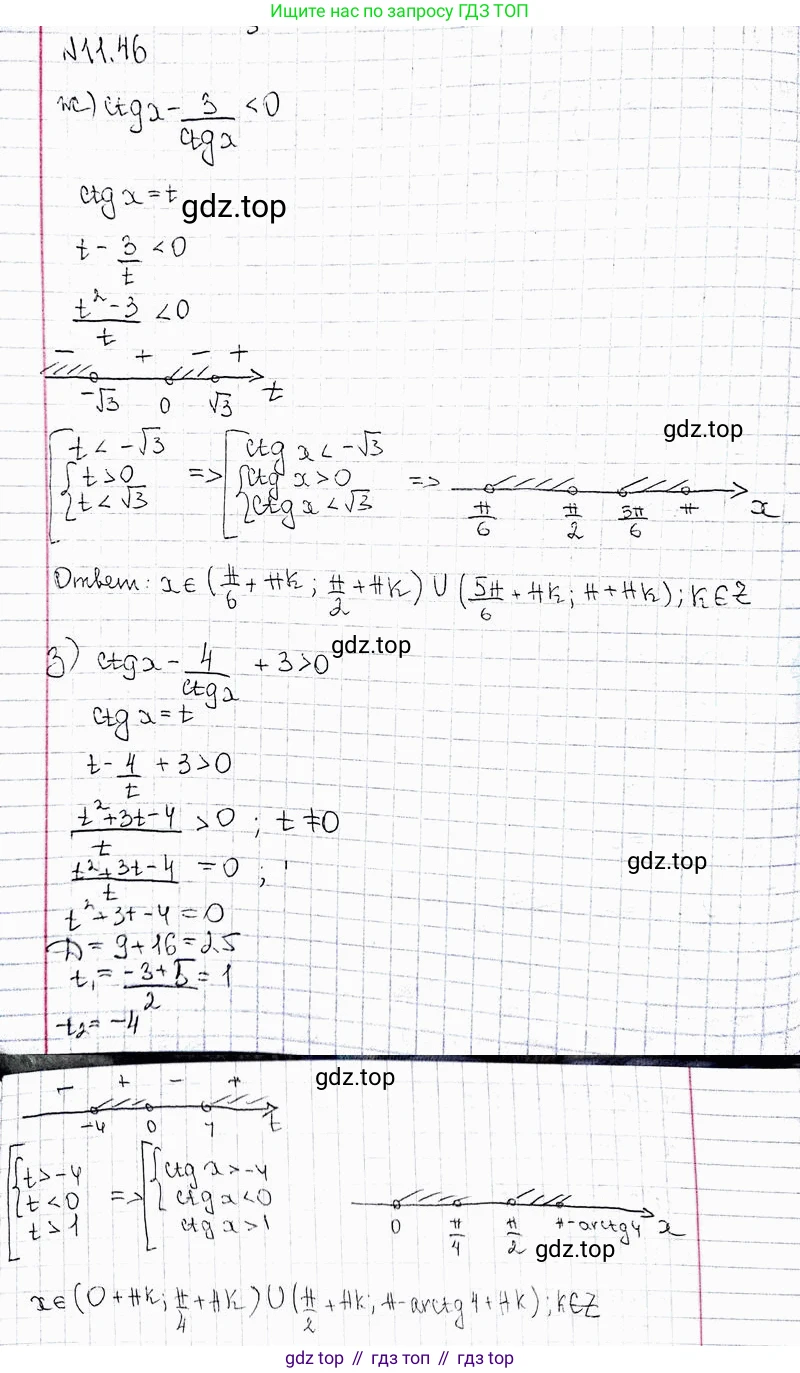 Ищите нас по запросу ГДЗ ТОП
№11.46
ж) ctg x - 3/ctg x < 0
ctg x = t
gdz.top
t - 3/t < 0
(t² - 3)/t < 0
- + - +
-√3 0 √3 t
gdz.top
[ t < -√3 => [ ctg x < -√3
{ t > 0 { ctg x > 0 =>
{ t < √3 { ctg x < √3
π/6 π/2 5π/6 π x
Ответ: x ∈ (π/6 + πk; π/2 + πk) ∪ (5π/6 + πk; π + πk); k ∈ Z
gdz.top
з) ctg x - 4/ctg x + 3 > 0
ctg x = t
t - 4/t + 3 > 0
(t² + 3t - 4)/t > 0 ; t ≠ 0
gdz.top
(t² + 3t - 4)/t = 0 ;
t² + 3t - 4 = 0
D = 9 + 16 = 25
t₁ = (-3 + 5)/2 = 1
t₂ = -4
gdz.top
- + - +
-4 0 1 t
[ { t > -4 => [ { ctg x > -4
{ t < 0 { ctg x < 0
t > 1 ctg x > 1
0 π/4 π/2 π-arcctg4 x
gdz.top
x ∈ (0 + πk; π/4 + πk) ∪ (π/2 + πk; π-arcctg4 + πk); k ∈ Z
gdz top // гдз топ // gdz top